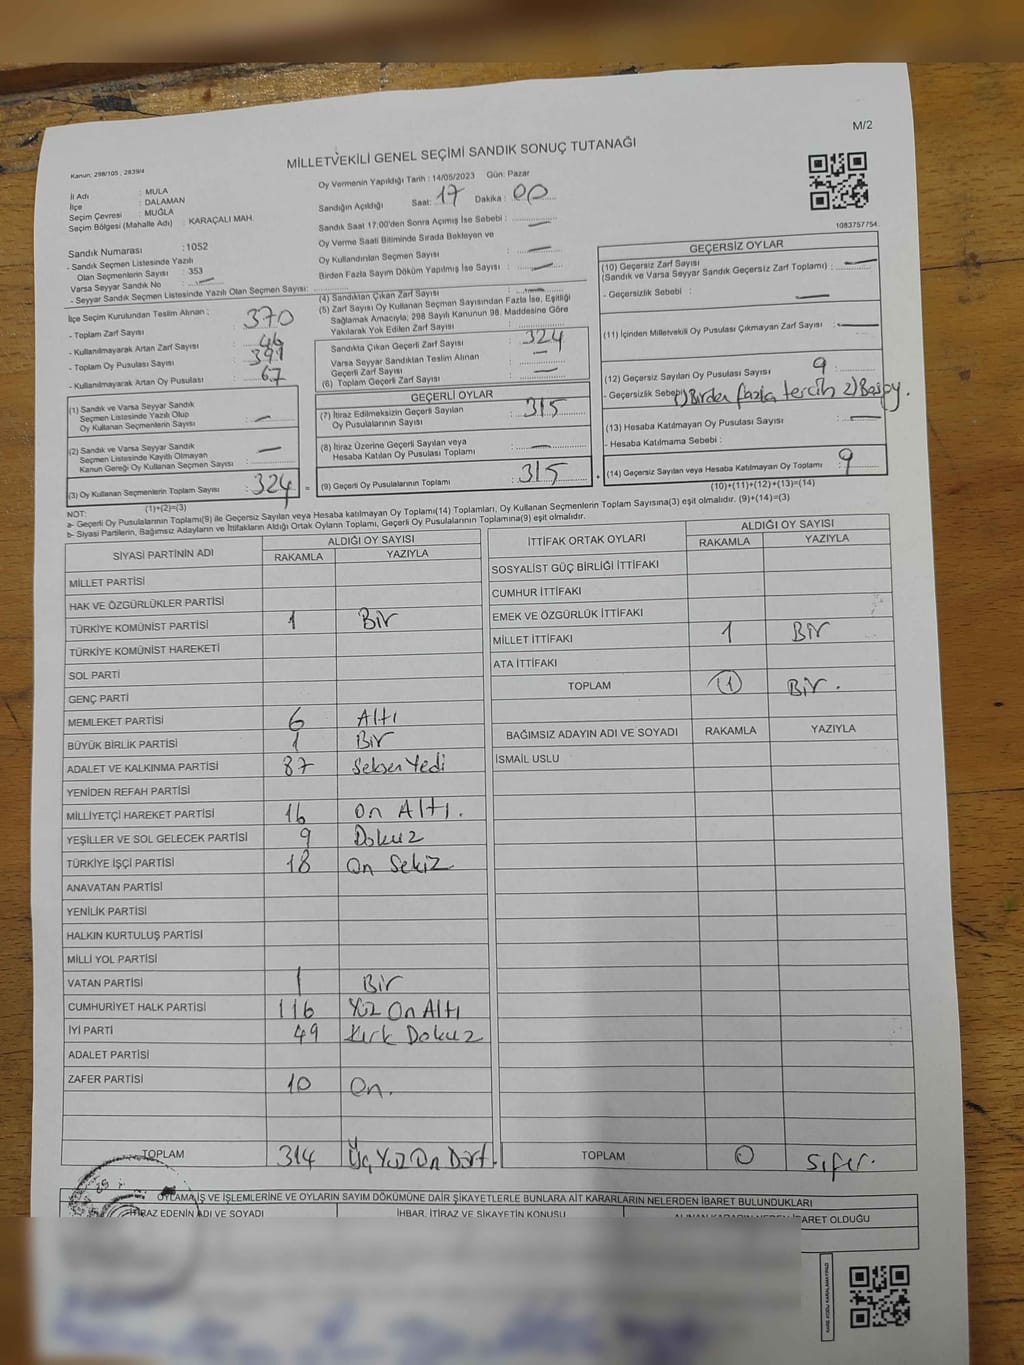 M/2
MİLLETVEKİLİ GENEL SEÇİMİ SANDIK SONUÇ TUTANAĞI
Kanun: 298/105 , 2839/4
İl Adı : MULA
İlçe : DALAMAN
Seçim Çevresi : MUĞLA
Seçim Bölgesi (Mahalle Adı) : KARAÇALI MAH.
Sandık Numarası :1052
- Sandık Seçmen Listesinde Yazılı
Olan Seçmenlerin Sayısı : 353
Varsa Seyyar Sandık No :
- Seyyar Sandık Seçmen Listesinde Yazılı Olan Seçmen Sayısı:
Oy Vermenin Yapıldığı Tarih : 14/05/2023 Gün: Pazar
Sandığın Açıldığı Saat: 17 Dakika : 00
Sandık Saat 17:00'den Sonra Açımış İse Sebebi :
Oy Verme Saati Bitiminde Sırada Bekleyen ve
Oy Kullandırılan Seçmen Sayısı :
Birden Fazla Sayım Döküm Yapılmış İse Sayısı :
1083757754
İlçe Seçim Kurulundan Teslim Alınan :
- Toplam Zarf Sayısı : 370
- Kullanılmayarak Artan Zarf Sayısı : 46
- Toplam Oy Pusulası Sayısı : 391
- Kullanılmayarak Artan Oy Pusulası : 67
(1) Sandık ve Varsa Seyyar Sandık
Seçmen Listesinde Yazılı Olup
Oy Kullanan Seçmenlerin Sayısı :
(2) Sandık ve Varsa Seyyar Sandık
Seçmen Listesinde Kayıtlı Olmayan
Kanun Gereği Oy Kullanan Seçmen Sayısı :
(3) Oy Kullanan Seçmenlerin Toplam Sayısı : 324
(1)+(2)=(3)
(4) Sandıktan Çıkan Zarf Sayısı :
(5) Zarf Sayısı Oy Kullanan Seçmen Sayısından Fazla İse, Eşitliği
Sağlamak Amacıyla; 298 Sayılı Kanunun 98. Maddesine Göre
Yakılarak Yok Edilen Zarf Sayısı :
Sandıkta Çıkan Geçerli Zarf Sayısı : 324
Varsa Seyyar Sandıktan Teslim Alınan
Geçerli Zarf Sayısı :
(6) Toplam Geçerli Zarf Sayısı :
GEÇERLİ OYLAR
(7) İtiraz Edilmeksizin Geçerli Sayılan
Oy Pusulasının Sayısı : 315
(8) İtiraz Üzerine Geçerli Sayılan veya
Hesaba Katılan Oy Pusulası Toplamı :
= (9) Geçerli Oy Pusulalarının Toplamı : 315
GEÇERSİZ OYLAR
(10) Geçersiz Zarf Sayısı
(Sandık ve Varsa Seyyar Sandık Geçersiz Zarf Toplamı) :
- Geçersizlik Sebebi :
(11) İçinden Milletvekili Oy Pusulası Çıkmayan Zarf Sayısı :
(12) Geçersiz Sayılan Oy Pusulası Sayısı : 9
- Geçersizlik Sebebi : 1) Birden fazla tercih 2)
(13) Hesaba Katılmayan Oy Pusulası Sayısı :
- Hesaba Katılmama Sebebi :
(14) Geçersiz Sayılan veya Hesaba Katılmayan Oy Toplamı : 9
(10)+(11)+(12)+(13)=(14)
NOT:
a- Geçerli Oy Pusulalarının Toplamı(9) ile Geçersiz Sayılan veya Hesaba Katılmayan oy Toplamı(14) Toplamları, Oy Kullanan Seçmenlerin Toplam Sayısına(3) eşit olmalıdır. (9)+(14)=(3)
b- Siyasi Partilerin, Bağımsız Adayların ve İttifakların Aldığı Ortak Oyların Toplamı, Geçerli Oy Pusulalarının Toplamına(9) eşit olmalıdır.
SİYASİ PARTİNİN ADI ALDIĞI OY SAYISI
RAKAMLA YAZIYLA
MİLLET PARTİSİ
HAK VE ÖZGÜRLÜKLER PARTİSİ
TÜRKİYE KOMÜNİST PARTİSİ 1 Bir
TÜRKİYE KOMÜNİST HAREKETİ
SOL PARTİ
GENÇ PARTİ
MEMLEKET PARTİSİ 6 Altı
BÜYÜK BİRLİK PARTİSİ 1 Bir
ADALET VE KALKINMA PARTİSİ 87 Seksen Yedi
YENİDEN REFAH PARTİSİ
MİLLİYETÇİ HAREKET PARTİSİ 16 On Altı.
YEŞİLLER VE SOL GELECEK PARTİSİ 9 Dokuz
TÜRKİYE İŞÇİ PARTİSİ 18 On Sekiz
ANAVATAN PARTİSİ
YENİLİK PARTİSİ
HALKIN KURTULUŞ PARTİSİ
MİLLİ YOL PARTİSİ
VATAN PARTİSİ 1 Bir
CUMHURİYET HALK PARTİSİ 116 Yüz On Altı
İYİ PARTİ 49 Kırk Dokuz
ADALET PARTİSİ
ZAFER PARTİSİ 10 On.
TOPLAM 314 Üç Yüz On Dört.
İTTİFAK ORTAK OYLARI ALDIĞI OY SAYISI
RAKAMLA YAZIYLA
SOSYALİST GÜÇ BİRLİĞİ İTTİFAKI
CUMHUR İTTİFAKI
EMEK VE ÖZGÜRLÜK İTTİFAKI
MİLLET İTTİFAKI 1 Bir
ATA İTTİFAKI
TOPLAM (1) Bir.
BAĞIMSIZ ADAYIN ADI VE SOYADI RAKAMLA YAZIYLA
İSMAİL USLU
TOPLAM 0 Sıfır.
OYLAMA İŞ VE İŞLEMLERİNE VE OYLARIN SAYIM DÖKÜMÜNE DAİR ŞİKAYETLERLE BUNLARA AİT KARARLARIN NELERDEN İBARET BULUNDUKLARI
İTİRAZ EDENİN ADI VE SOYADI İHBAR, İTİRAZ VE ŞİKAYETİN KONUSU ALINAN KARARIN NEDEN İBARET OLDUĞU